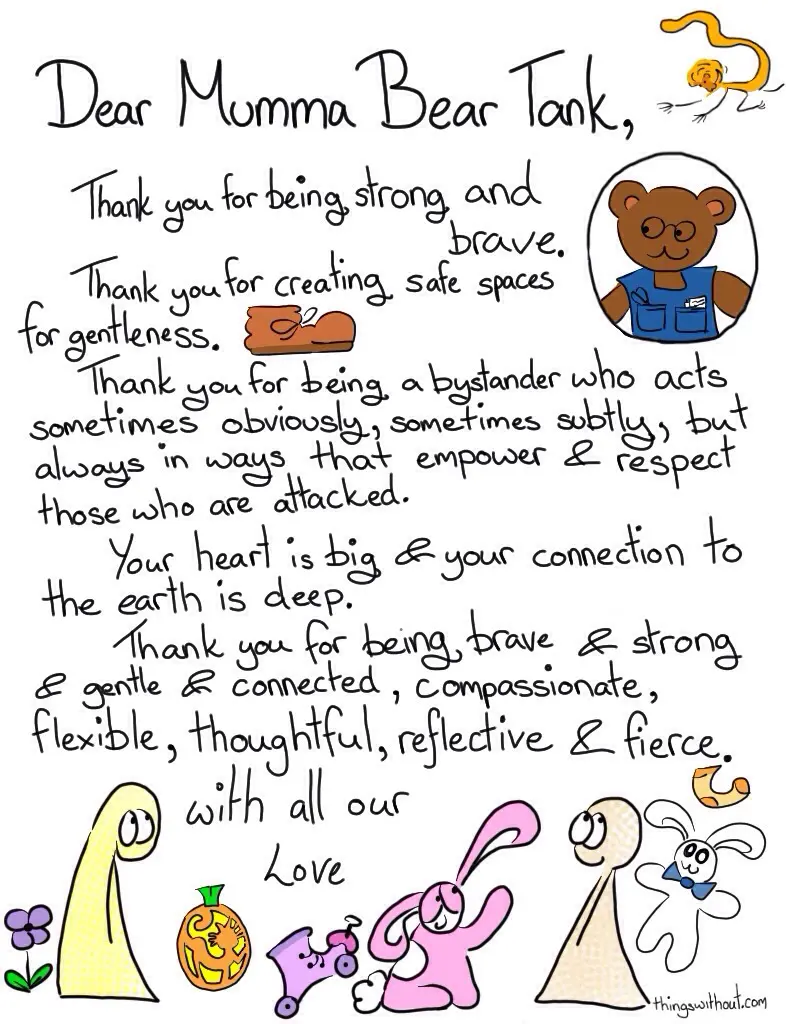 Dear Mumma Bear Tank,
Thank you for being strong and
brave.
Thank you for creating safe spaces
for gentleness.
Thank you for being a bystander who acts
sometimes obviously, sometimes subtly, but
always in ways that empower & respect
those who are attacked.
Your heart is big & your connection to
the earth is deep.
Thank you for being brave & strong
& gentle & connected, compassionate,
flexible, thoughtful, reflective & fierce.
with all our
Love
thingswithout.com